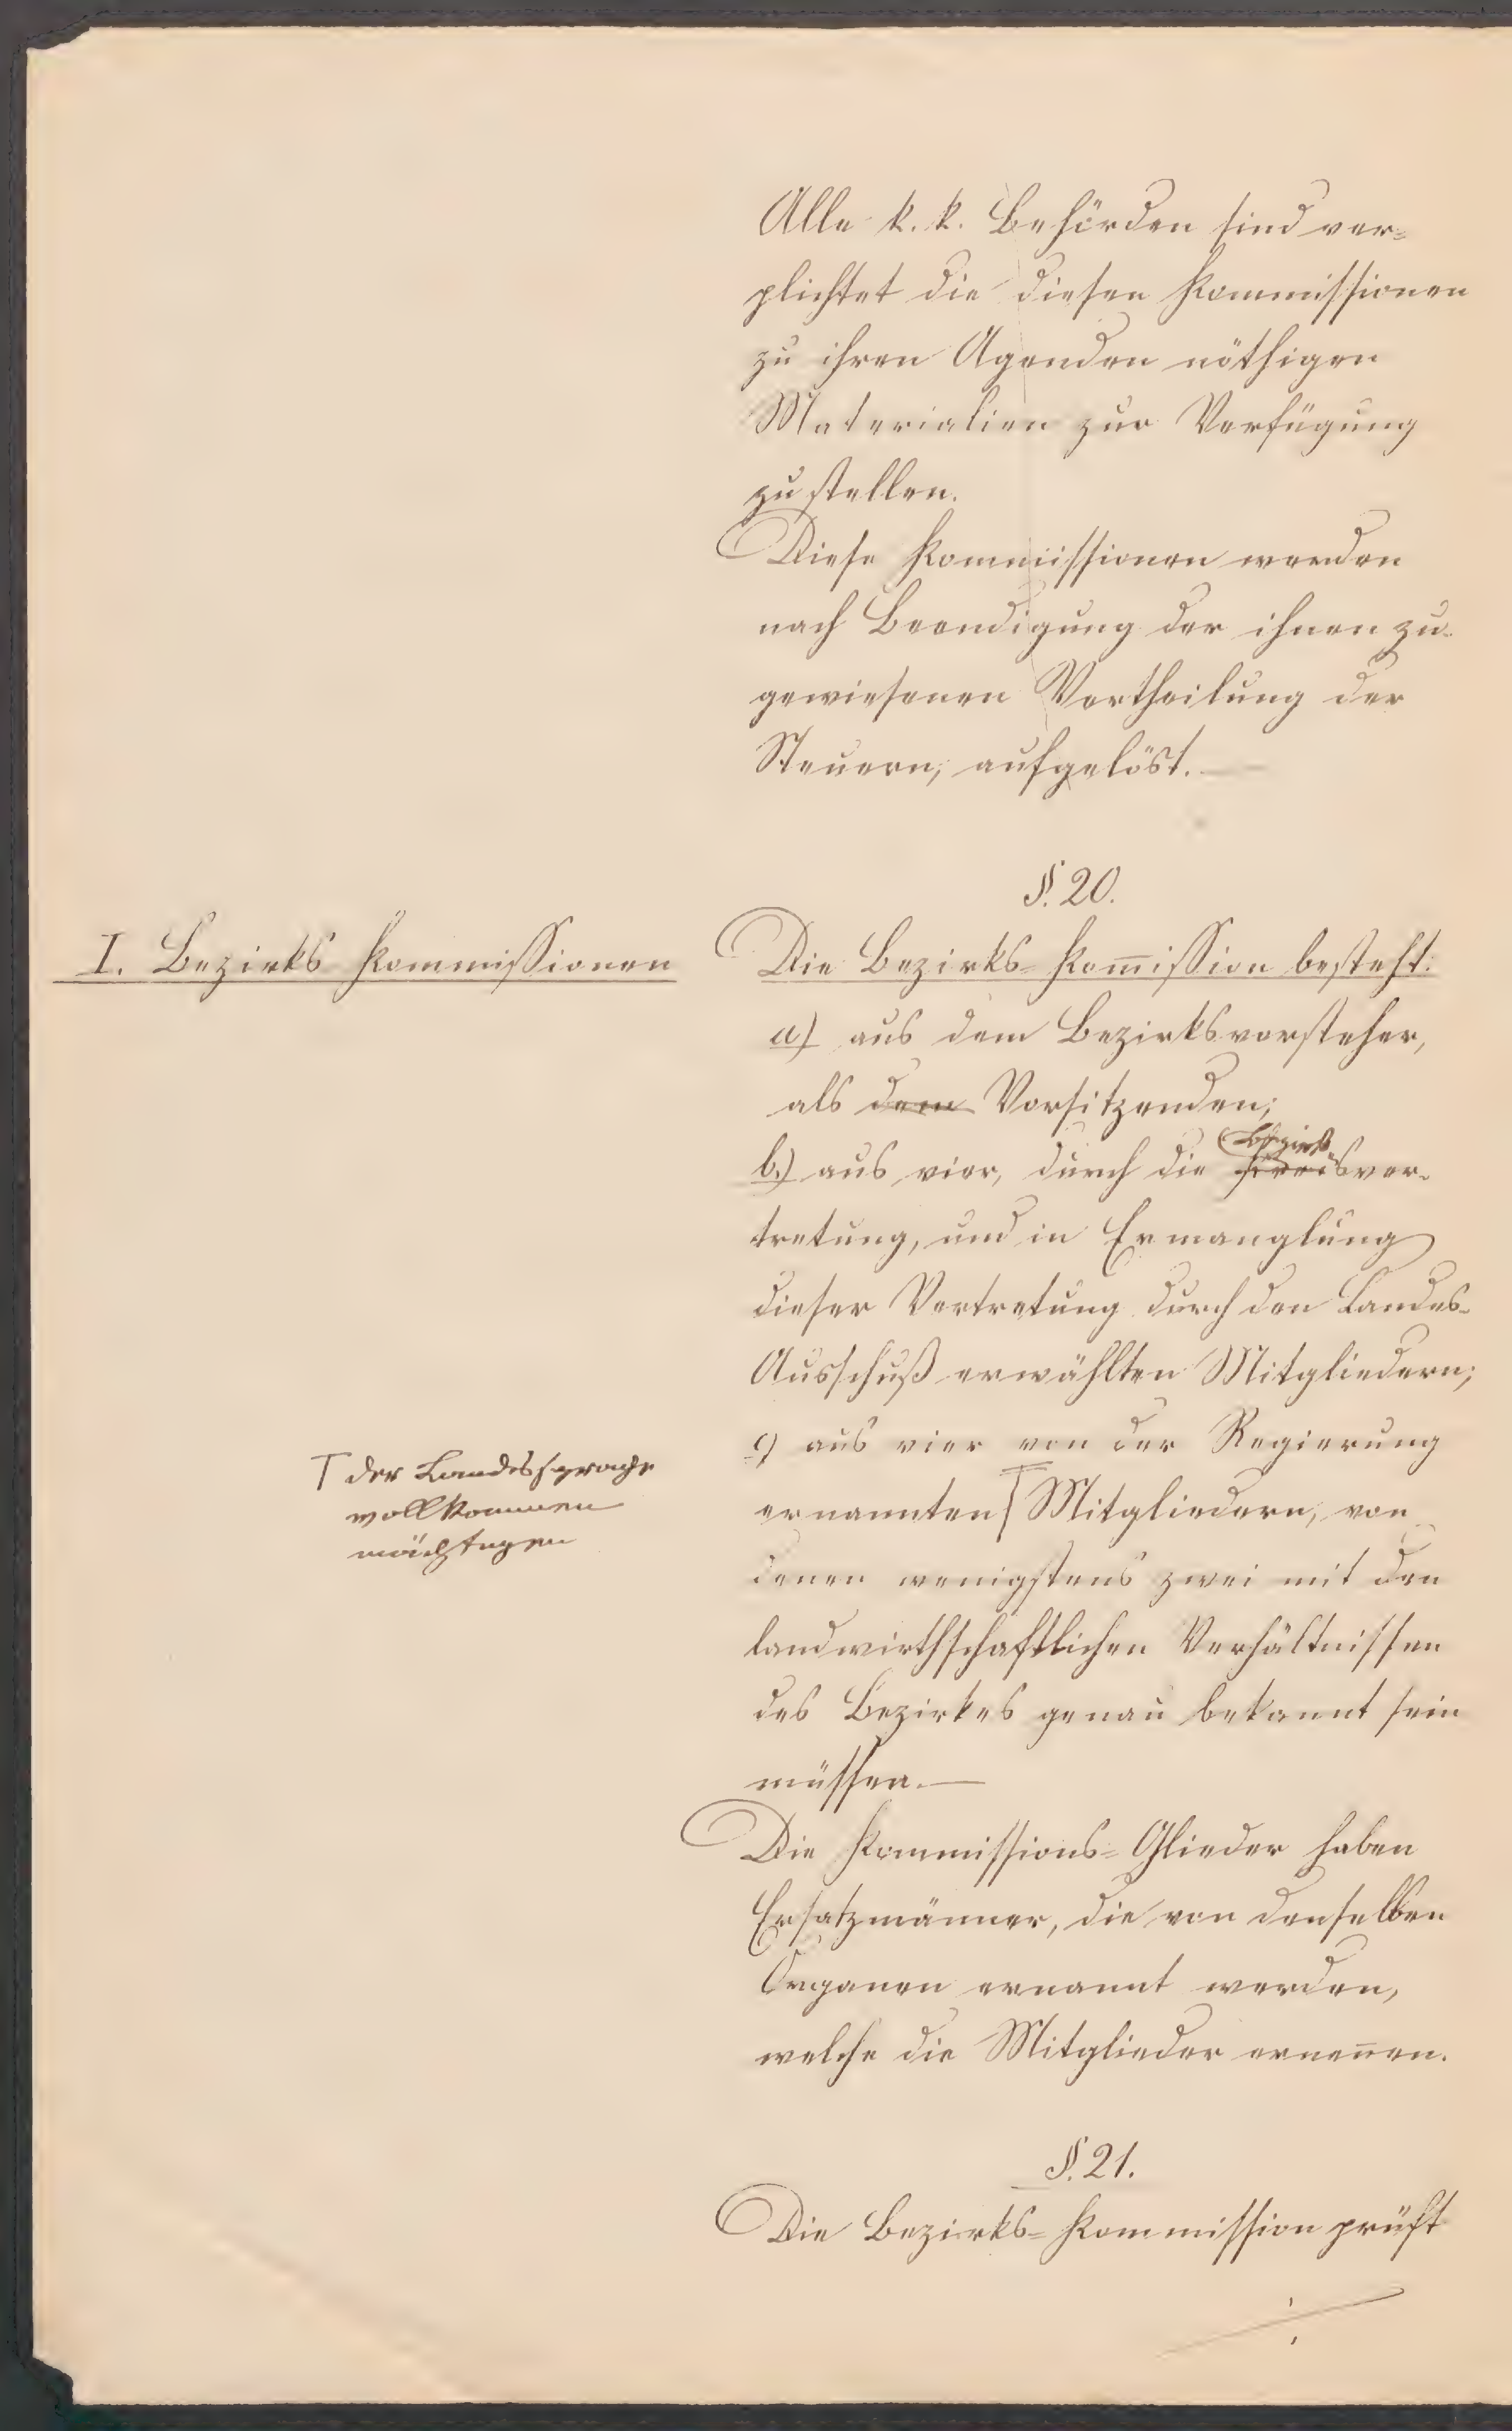 Alle k. k. Behörden sind ver=
plichtet die diesen Kommissionen
zu ihren Agenden nöthigen
Materialien zur Verfügung
zu stellen.
Diese Kommissionen werden
nach Beendigung der ihnen zu=
gewiesenen Vertheilung der
Steuern, aufgelöst.—
§. 20.
I. Bezirks Kommissionen
Die Bezirks=Kom̅ission besteht:
a) aus dem Bezirksvorsteher,
als dem Vorsitzenden;
Bezirks
b.) aus vier, durch die Kreisver=
tretung, und in Ermanglung
dieser Vertretung durch den Landes=
Ausschuß erwählten Mitgliedern;
c) aus vier von der Regierung
ernannten ⌈ Mitgliedern, von
denen wenigstens zwei mit den
landwirthschaftlichen Verhältnissen
des Bezirkes genau bekannt sein
müssen.—
⌈ der Landessprache
vollkommen
mächtigen
Die Kommissions=Glieder haben
Ersatzmänner, die von denselben
Organen ernannt werden,
welche die Mitglieder ernen̅en.
§. 21.
Die Bezirks=Kommission prüft